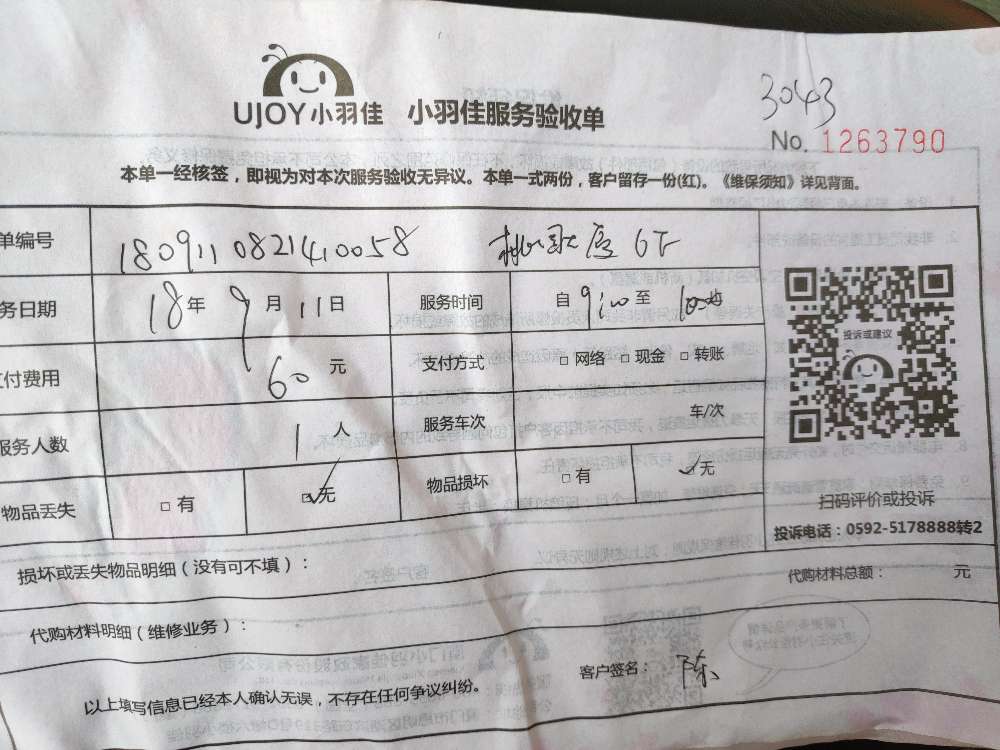 UJOY小羽佳 小羽佳服务验收单
3043
No. 1263790
本单一经核签，即视为对本次服务验收无异议。本单一式两份，客户留存一份(红)。《维保须知》详见背面。
单编号 180911 0821410058
务日期 18年 9月 11日 服务时间 自 9:00 至
付费用 60 元 支付方式 □ 网络 □ 现金 □ 转账
服务人数 1 人 服务车次 车/次
物品丢失 □ 有 □ 无 物品损坏 □ 有 □ 无
投诉或建议
扫码评价或投诉
投诉电话：0592-5178888转2
损坏或丢失物品明细（没有可不填）：
代购材料总额： 元
代购材料明细（维修业务）：
客户签名： 陈
以上填写信息已经本人确认无误，不存在任何争议纠纷。